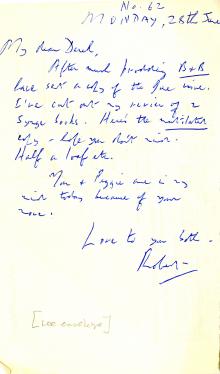 No. 62
MONDAY, 28th June
My dear Derek,
After much prodding B&B
have sent a copy of the June issue.
I've cut out my review of 2
Synge books. Here's the mutilated
copy - hope you don't mind.
Half a loaf etc.
You & Peggie are in my
mind today because of your
move.
Love to you both -
Robert
[see envelope]